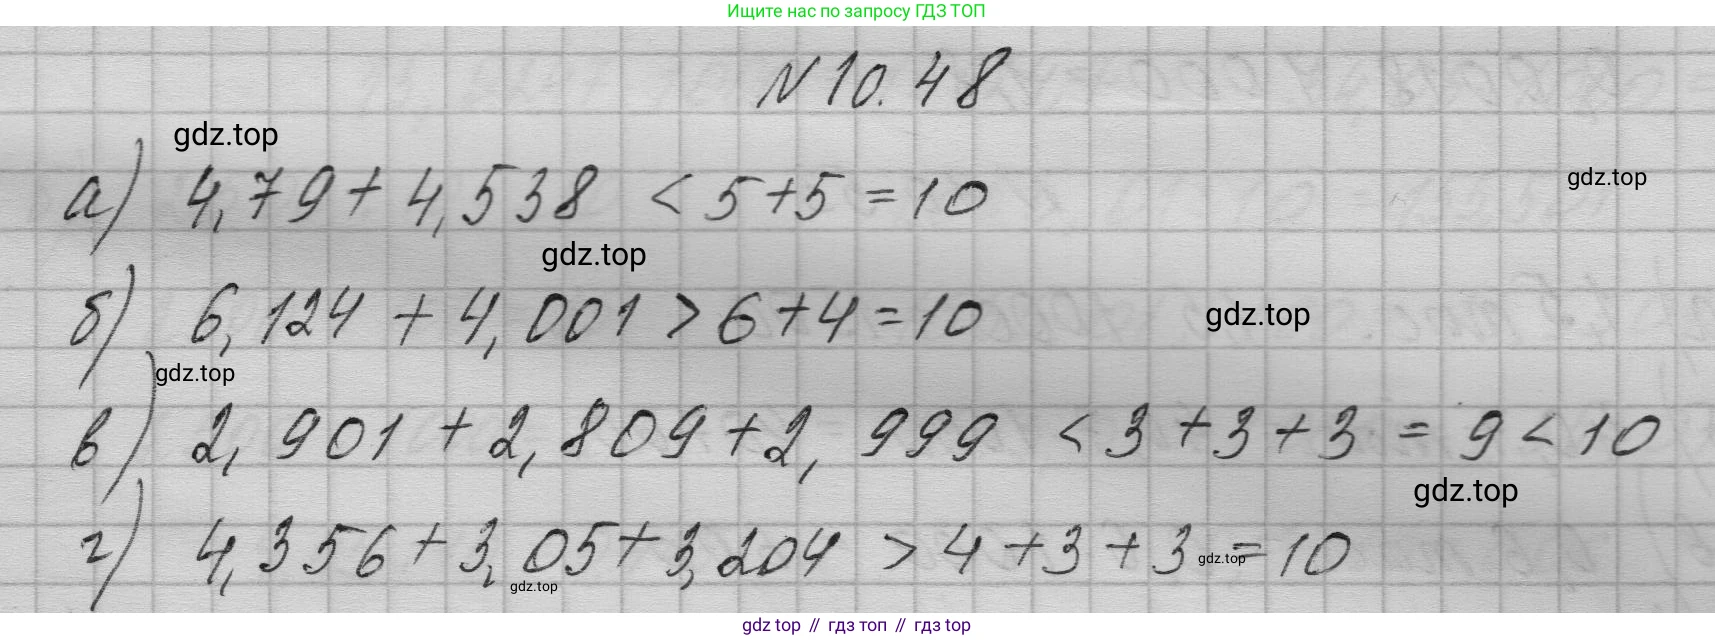 Ищите нас по запросу ГДЗ ТОП
N 10.48
gdz.top
а) 4,79 + 4,538 < 5 + 5 = 10
gdz.top
gdz.top
б) 6,124 + 4,001 > 6 + 4 = 10
gdz.top
gdz.top
в) 2,901 + 2,809 + 2,999 < 3 + 3 + 3 = 9 < 10
gdz.top
г) 4,356 + 3,05 + 3,204 > 4 + 3 + 3 = 10
gdz.top
gdz.top
gdz top // гдз топ // гдз top